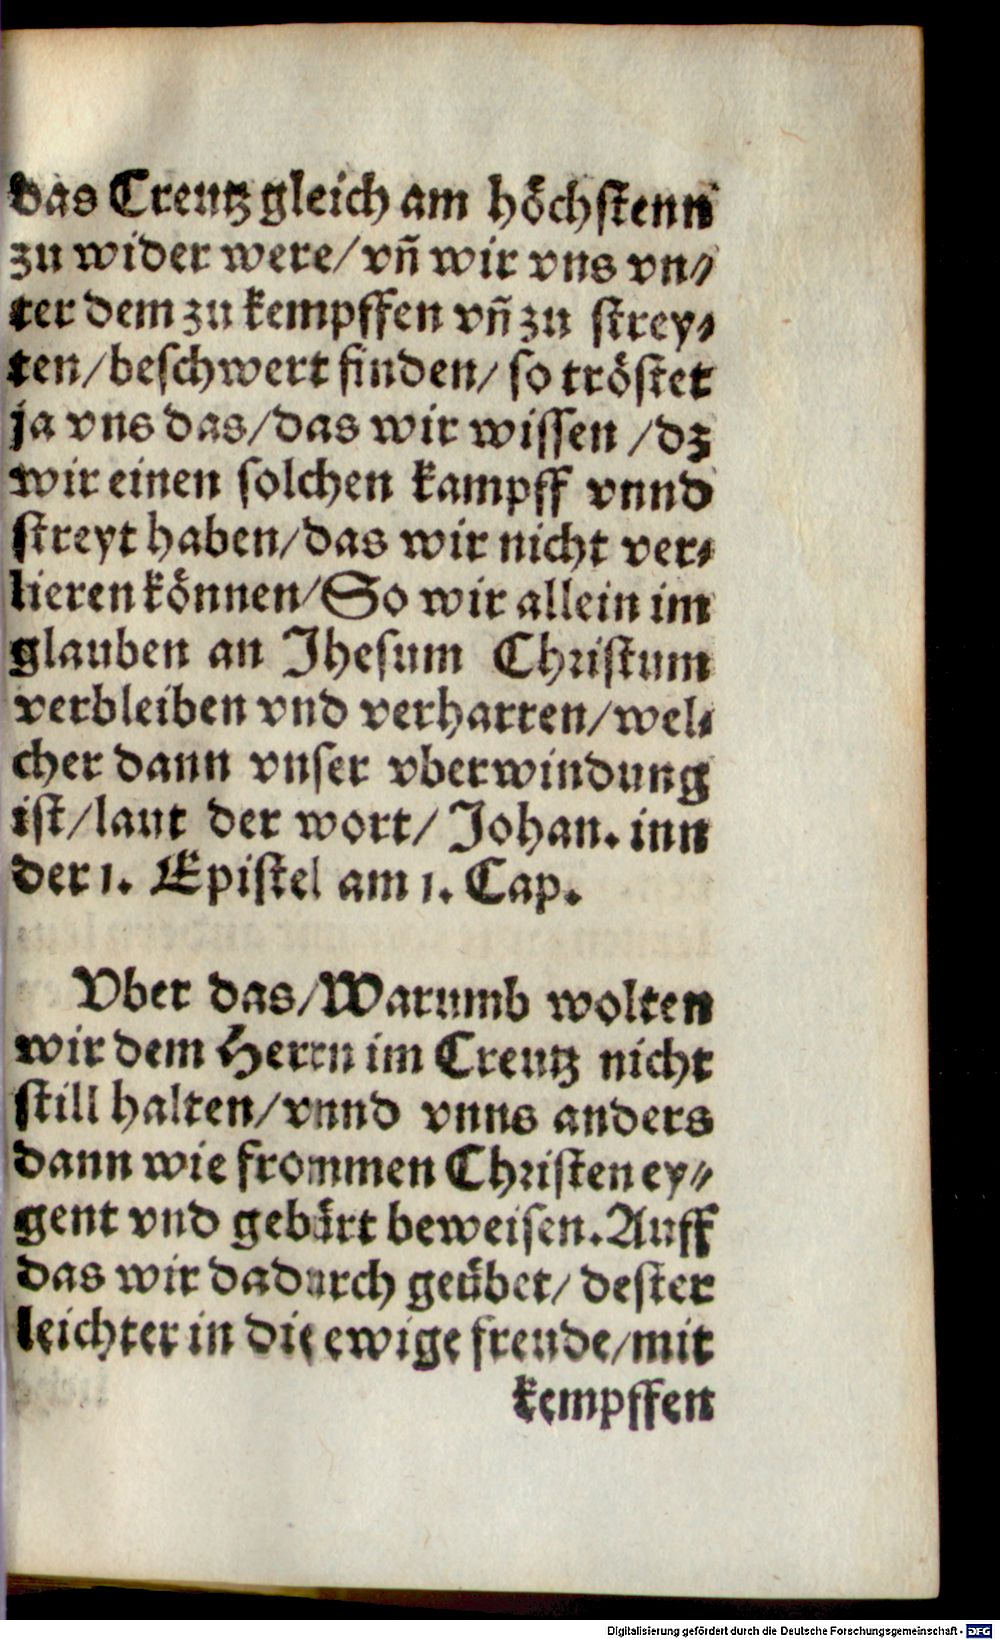 das Creutz gleich am höchstenn
zu wider were/ vñ wir vns vn⸗
ter dem zu kempffen vñ zu strey⸗
ten/ beschwert finden/ so tröstet
ja vns das/ das wir wissen / dz
wir einen solchen kampff vnnd
streyt haben/ das wir nicht ver⸗
lieren können/ So wir allein im
glauben an Jhesum Christum
verbleiben vnd verharren/ wel⸗
cher dann vnser vberwindung
ist/ laut der wort/ Johan. inn
der 1. Epistel am 1. Cap.
Vber das/ Warumb wolten
wir dem Herrn im Creutz nicht
still halten/ vnnd vnns anders
dann wie frommen Christen ey⸗
gent vnd gebürt beweisen. Auff
das wir dadurch geübet/ dester
leichter in die ewige freude/ mit
kempffen
Digitalisierung gefördert durch die Deutsche Forschungsgemeinschaft - DFG